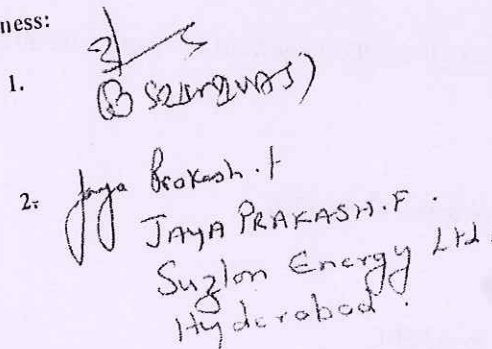 ness:
1.
2. Jaya Prakash.F
JAYA PRAKASH.F.
Suzlon Energy Ltd.
Hyderabad.